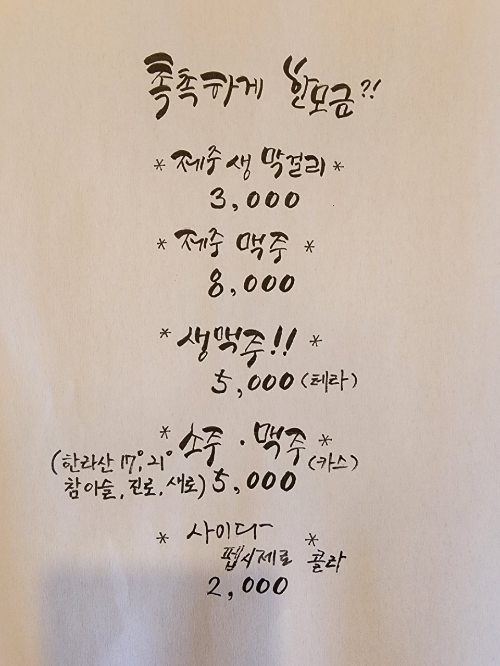 촉촉하게 한모금?!
* 제주 생 막걸리 *
3,000
* 제주 맥주 *
8,000
* 생맥주!! *
5,000 (테라)
* 소주 · 맥주 *
(한라산 17°, 21° (카스)
참이슬, 진로, 새로) 5,000
* 사이다 *
펩시제로 콜라
2,000